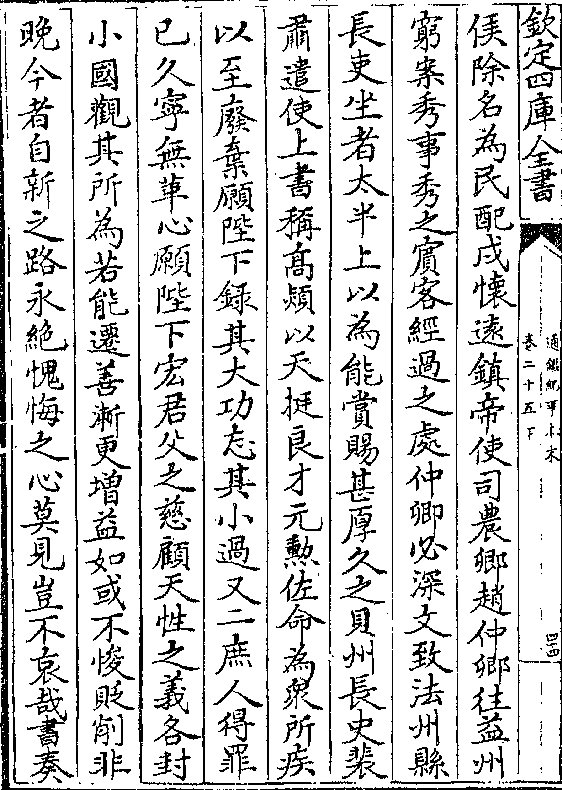 欽定四庫全書
通鑑紀事本末
卷二十五下
四四
侯除名為民配戍懷遠鎮帝使司農卿趙仲卿往益州
窮案秀事秀之賓客經過之處仲卿必深文致法州縣
長吏坐者太半上以為能賞賜甚厚久之貝州長史裴
肅遣使上書稱高熲以天挺良才元勲佐命為衆所疾
以至廢棄願陛下録其大功忘其小過又二庶人得罪
已久寧無革心願陛下宏君父之慈顧天性之義各封
小國觀其所為若能遷善漸更增益如或不悛貶削非
晚今者自新之路永絶愧悔之心莫見豈不哀哉書奏